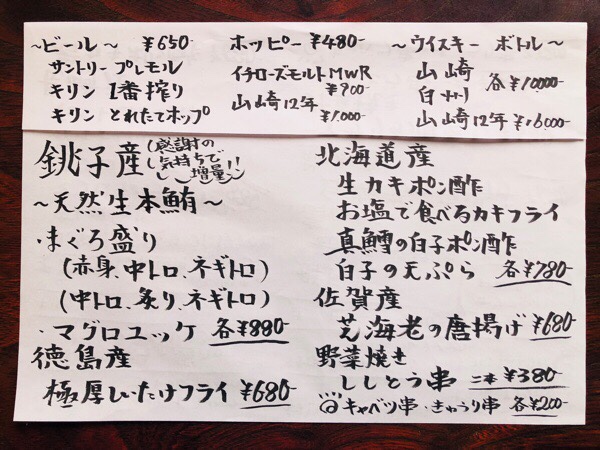 ~ビール~ ¥650-
サントリー プレモル
キリン 1番搾り
キリン とれたてホップ
ホッピー ¥480-
イチローズモルトMWR
¥900-
山崎12年
¥1.000-
~ウイスキー ボトル~
山崎
白州 各¥10000-
山崎12年 ¥16000-
銚子産 (感謝の
気持ちで
増量!!)
~天然生本鮪~
まぐろ盛り
(赤身、中トロ、ネギトロ)
(中トロ、炙り、ネギトロ)
・マグロユッケ 各¥880-
徳島産
極厚しいたけフライ ¥680-
北海道産
生カキポン酢
お塩で食べるカキフライ
真鱈の白子ポン酢
白子の天ぷら 各¥780-
佐賀産
芝海老の唐揚げ ¥680-
野菜焼き
ししとう串 二本 ¥380-
キャベツ串・きゅうり串 各¥200-